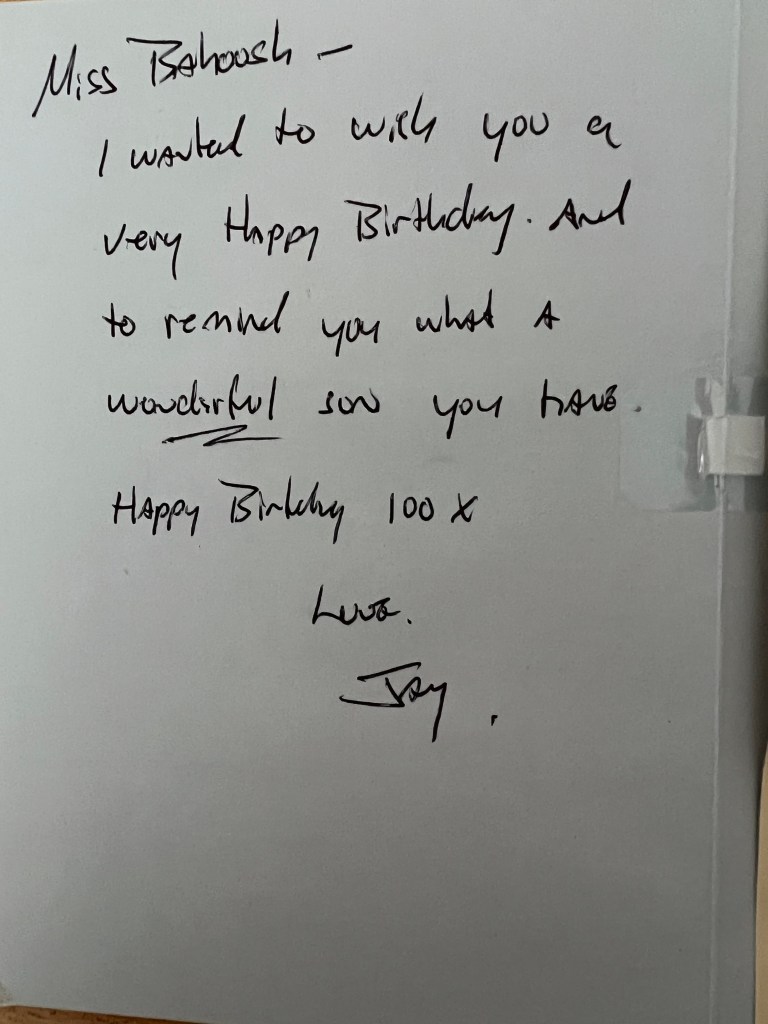 Miss Bahoosh –
I wanted to wish you a
very Happy Birthday. And
to remind you what A
wonderful son you have.
Happy Birthday 100 X
Love.
Jay.